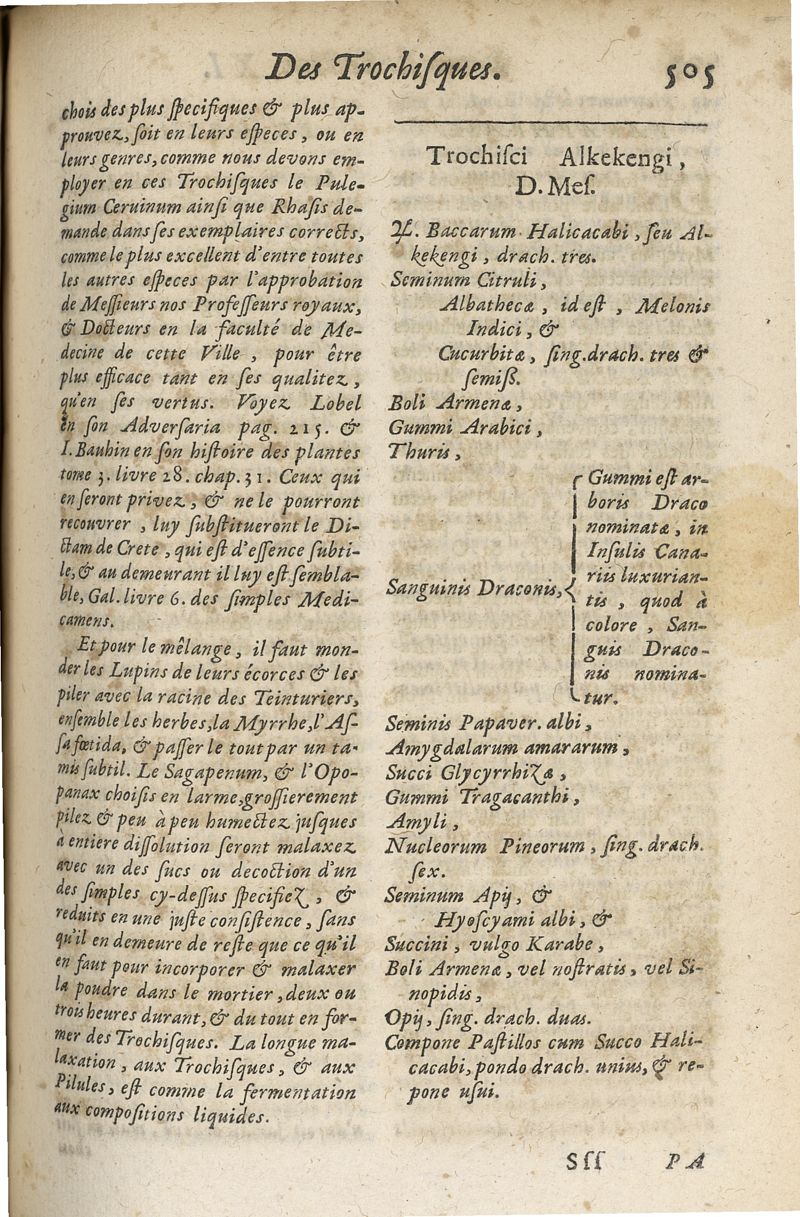 Des Trochiſques. 505
chois des plus ſpecifiques & plus ap-
prouvez, ſoit en leurs eſpeces, ou en
leurs genres, comme nous devons em-
ployer en ces Trochiſques le Pule-
gium Ceruinum ainſi que Rhaſis de-
mande dans ſes exemplaires corrects,
comme le plus excellent d'entre toutes
les autres eſpeces par l'approbation
de Meſſieurs nos Profeſſeurs royaux,
& Docteurs en la faculté de Me-
decine de cette Ville , pour être
plus efficace tant en ſes qualitez ,
qu'en ſes vertus. Voyez Lobel
en ſon Adverſaria pag. 215. &
I. Bauhin en ſon hiſtoire des plantes
tome 3. livre 28. chap. 31. Ceux qui
en ſeront privez , & ne le pourront
recouvrer , luy ſubſtitueront le Di-
ctam de Crete , qui eſt d'eſſence ſubti-
le, & au demeurant il luy eſt ſembla-
ble, Gal. livre 6. des ſimples Medi-
camens.
Et pour le mêlange , il faut mon-
der les Lupins de leurs écorces & les
piler avec la racine des Teinturiers,
enſemble les herbes, la Myrrhe, l'Aſ-
ſa fœtida, & paſſer le tout par un ta-
mis ſubtil. Le Sagapenum, & l'Opo-
panax choiſis en larme, groſſierement
pilez & peu à peu humectez juſques
à entiere diſſolution ſeront malaxez
avec un des ſucs ou decoction d'un
des ſimples cy-deſſus ſpecifiez , &
reduits en une juſte conſiſtence , ſans
qu'il en demeure de reſte que ce qu'il
en faut pour incorporer & malaxer
la poudre dans le mortier, deux ou
trois heures durant, & du tout en for-
mer des Trochiſques. La longue ma-
laxation , aux Trochiſques, & aux
Pilules, eſt comme la fermentation
aux compoſitions liquides.
Trochiſci Alkekengi ,
D. Meſ.
♃. Baccarum Halicacabi , ſeu Al-
kekengi , drach. tres.
Seminum Citruli ,
Albathecæ , id eſt , Melonis
Indici , &
Cucurbitæ , ſing. drach. tres &
ſemiſſ.
Boli Armenæ ,
Gummi Arabici ,
Thuris ,
Sanguinis Draconis, {
Gummi eſt ar-
boris Draco
nominatæ , in
Inſulis Cana-
riis luxurian-
tis , quod à
colore , San-
guis Draco-
nis nomina-
tur.
Seminis Papaver. albi ,
Amygdalarum amararum ,
Succi Glycyrrhizæ ,
Gummi Tragacanthi ,
Amyli ,
Nucleorum Pineorum , ſing. drach.
ſex.
Seminum Apij , &
Hyoſcyami albi , &
Succini , vulgo Karabe ,
Boli Armenæ , vel noſtratis , vel Si-
nopidis ,
Opij , ſing. drach. duas.
Compone Paſtillos cum Succo Hali-
cacabi, pondo drach. unius, & re-
pone uſui.
Sſſ PA